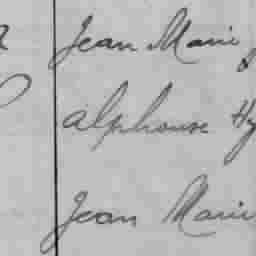 Jean Marie
Alphonse Hy
Jean Marie